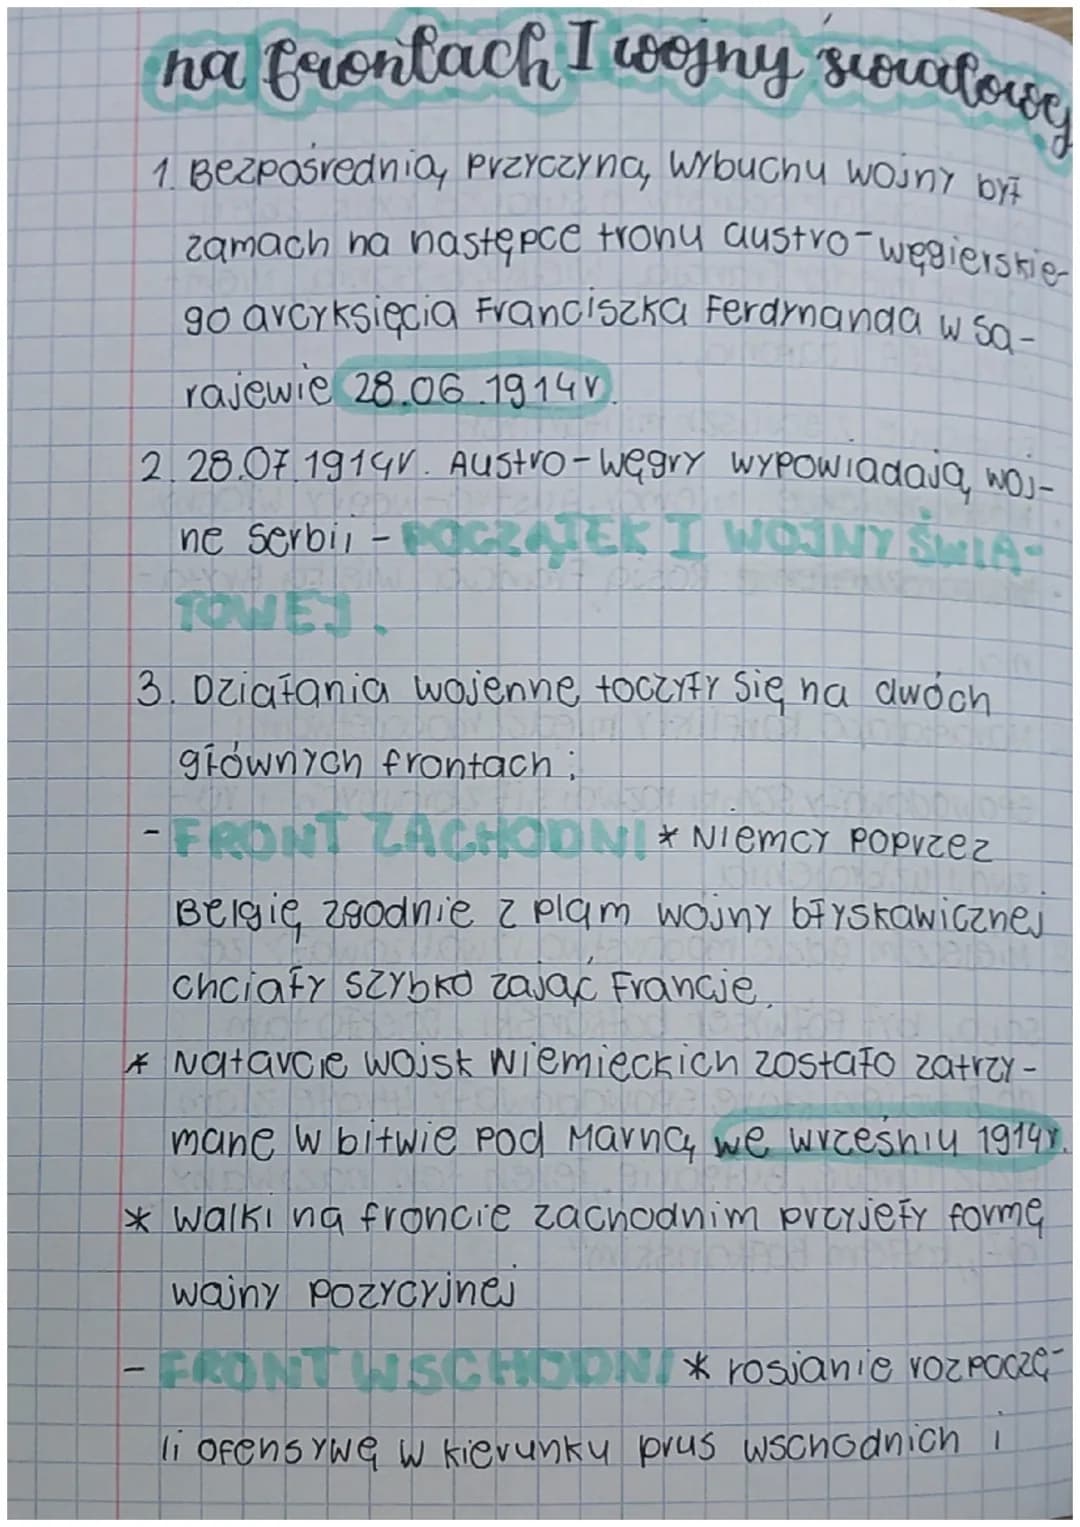 na frontach I wojny światowej
1. Bezpośrednią przyczyną wybuchu wojny był
zamach na następce tronu austro-węgierskie-
go arcyksięcia Franciszka Ferdynanda w Sa-
rajewie 28.06.1914r.
2. 28.07.1914r. Austro-Węgry wypowiadają woj-
ne Serbii - POCZĄTEK I WOJNY ŚWIA-
TOWEJ.
3. Działania wojenne toczyły się na dwóch
głównych frontach:
- FRONT ZACHODNI * Niemcy poprzez
Belgię zgodnie z plam wojny błyskawicznej
chciały szybko zająć Francje.
* Natarcie wojsk niemieckich zostało zatrzy-
mane w bitwie pod Marną we wrześniu 1914r.
* walki na froncie zachodnim przyjeły formę
wojny pozycyjnej
- FRONT WSCHODNI * rosjanie rozpoczę-
li ofensywę w kierunku prus wschodnich i